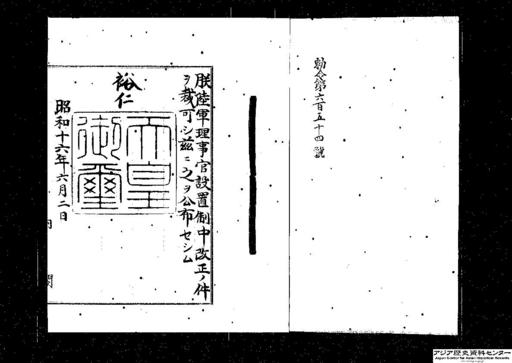 勅令第六百五十四號
朕陸軍理事官設置制中改正ノ件
ヲ裁可シ茲ニ之ヲ公布セシム
裕仁
天皇
御璽
昭和十六年六月二日
内閣
アジア歴史資料センター
Japan Center for Asian Historical Records